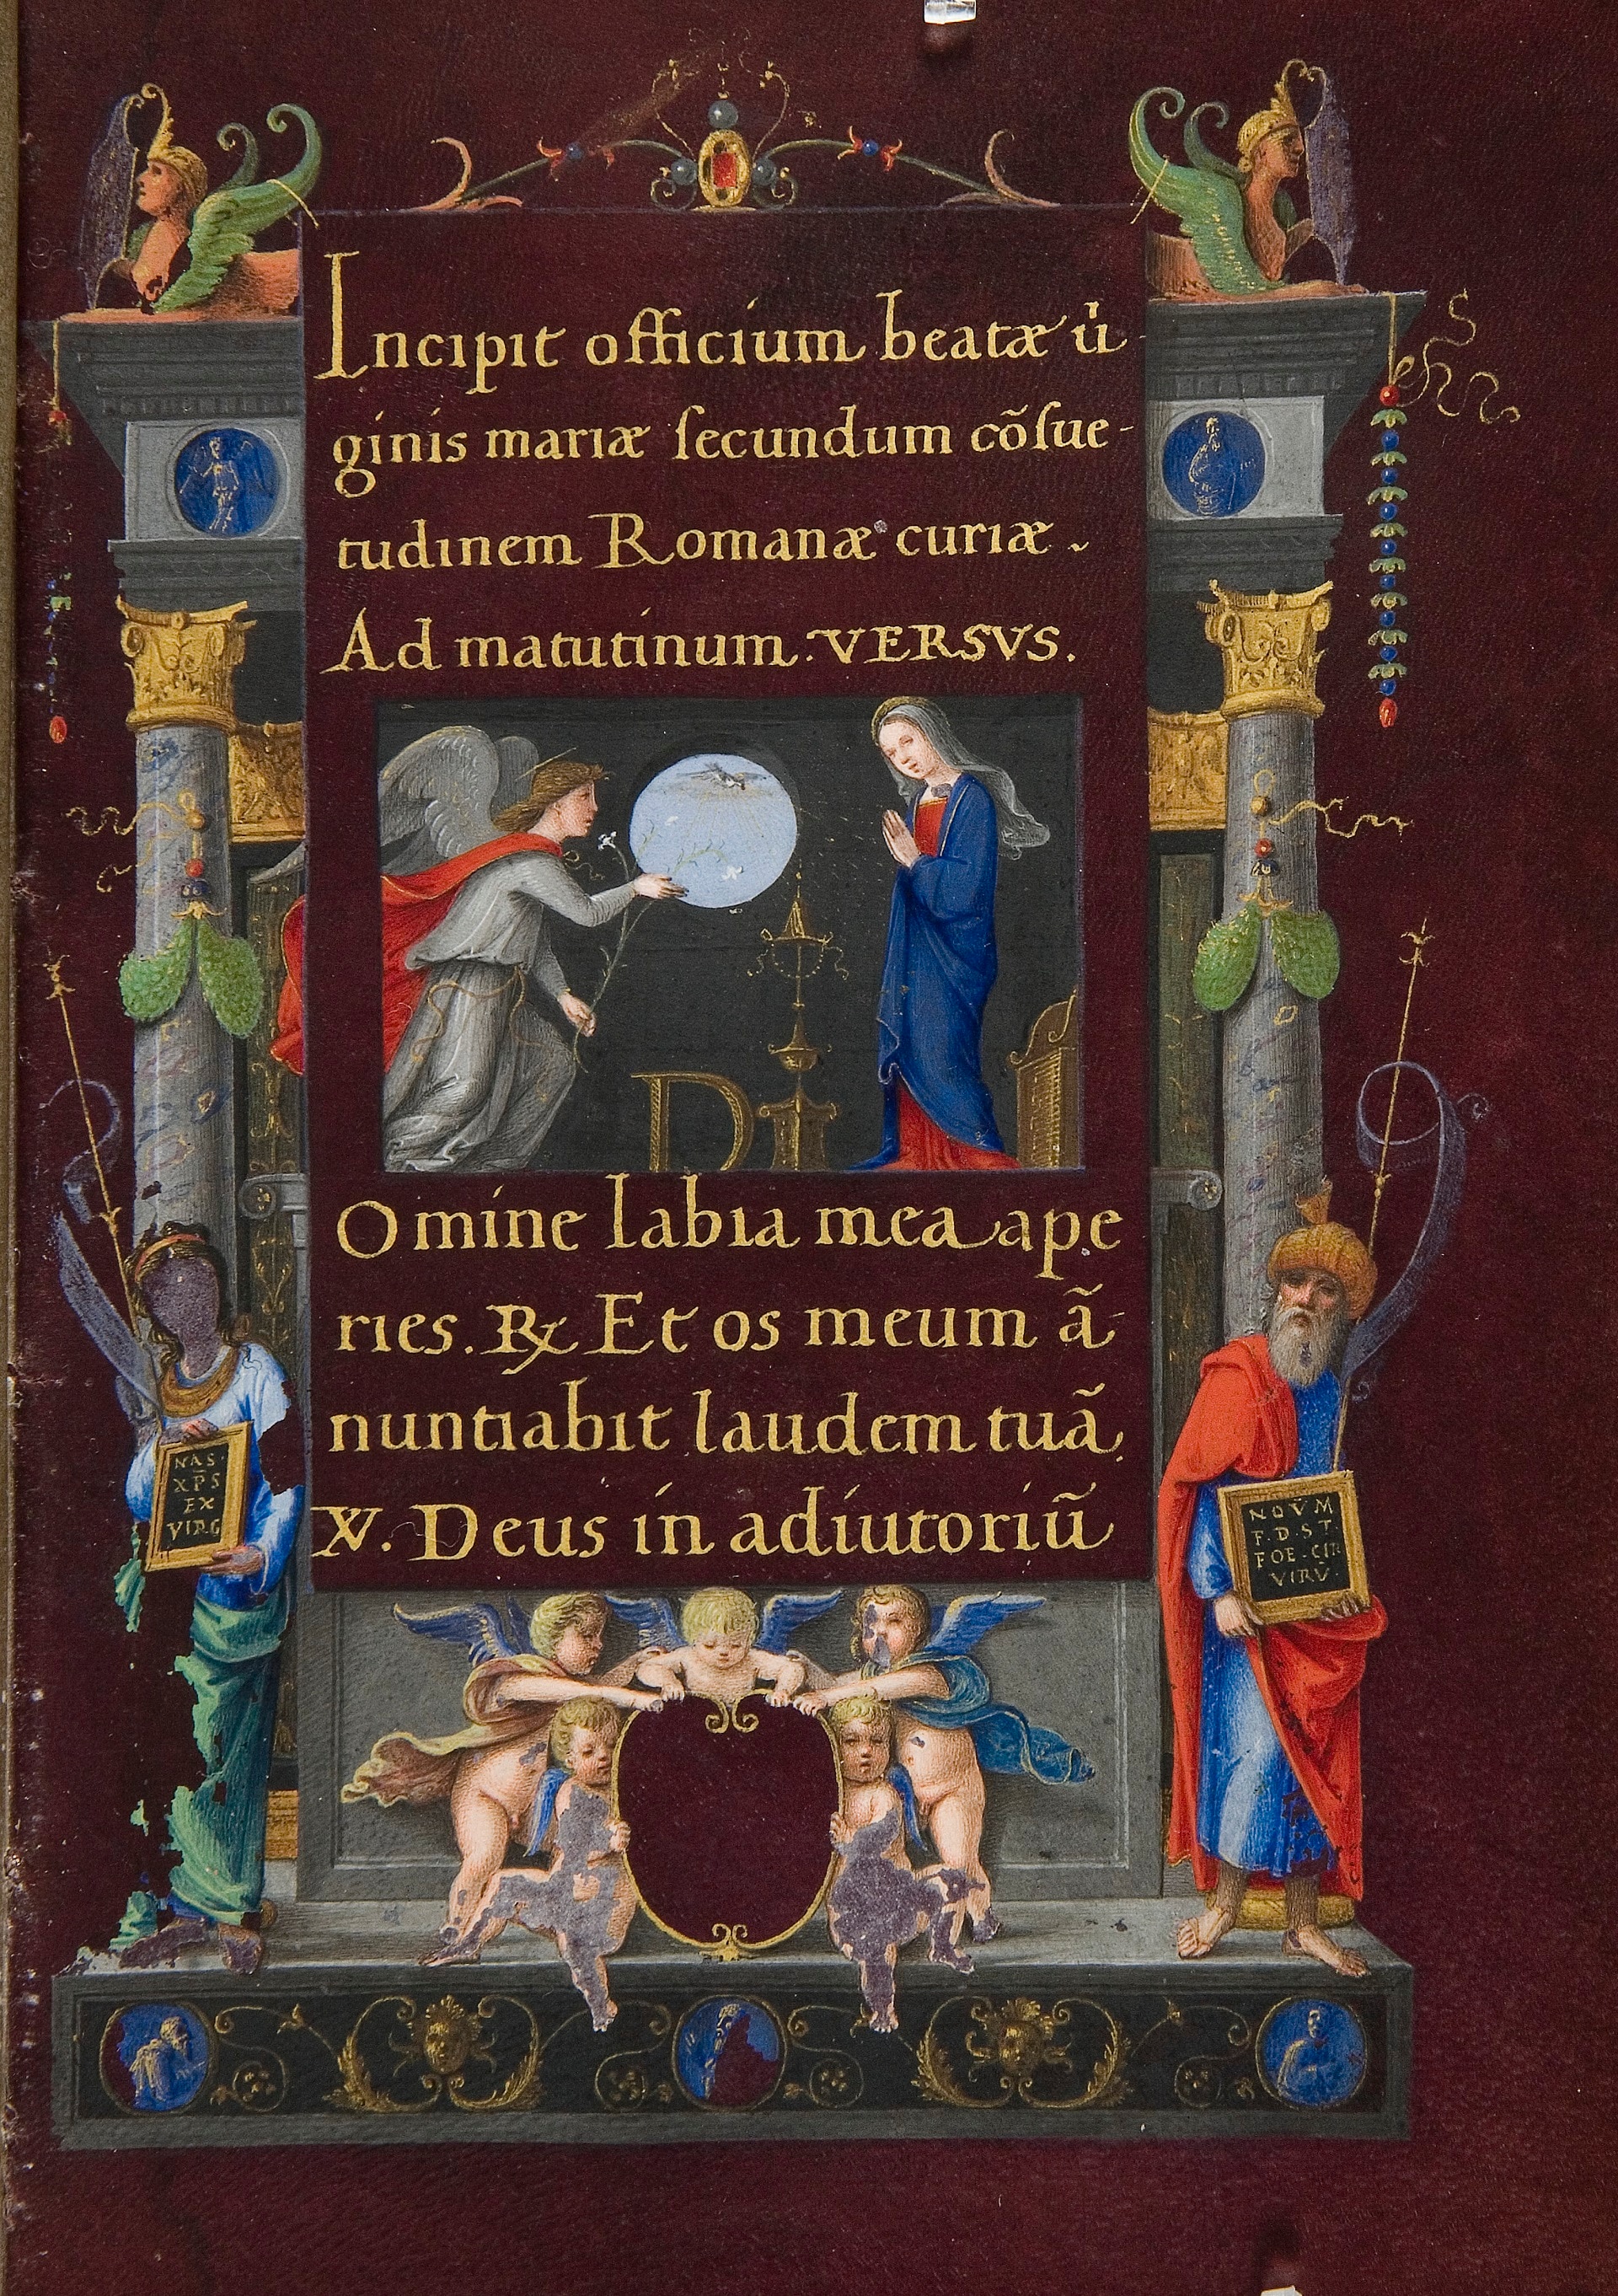 Incipit officium beatæ ui
ginis mariæ ſecundum cõſue-
tudinem Romanæ curiæ.
Ad matutinum. VERSVS.
D
Omine labia mea ape
ries. ℟ Et os meum ã-
nuntiabit laudem tuã
℣. Deus in adiutoriũ
NAS.
XP̄S
EX
VIRG
NOVM
F.D.ST.
FOE.CIR
VIRV.